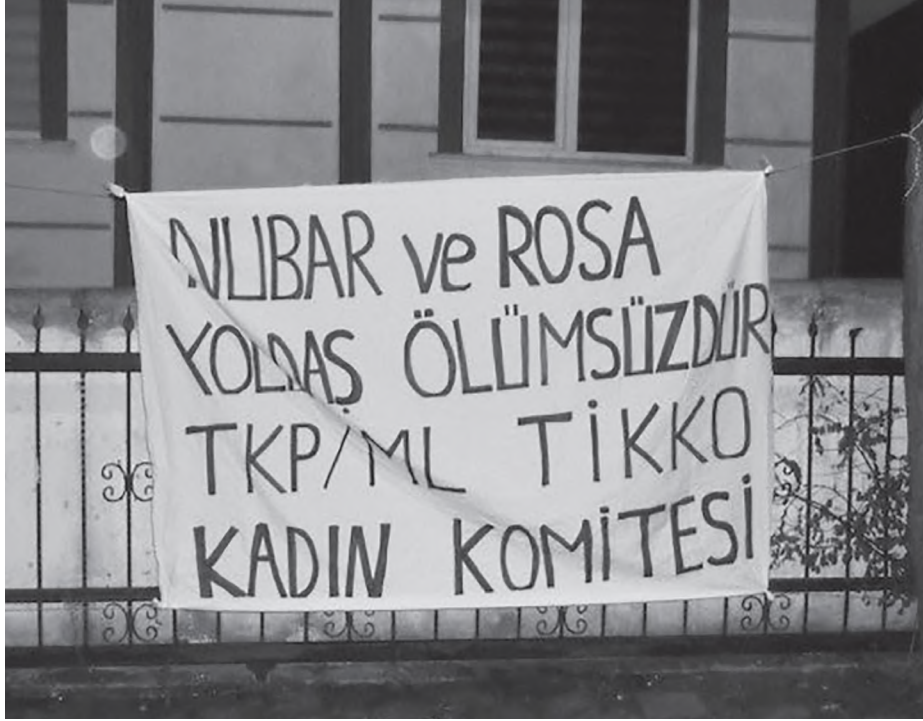 NUBAR ve ROSA
YOLDAŞ ÖLÜMSÜZDÜR
TKP/ML TİKKO
KADIN KOMİTESİ